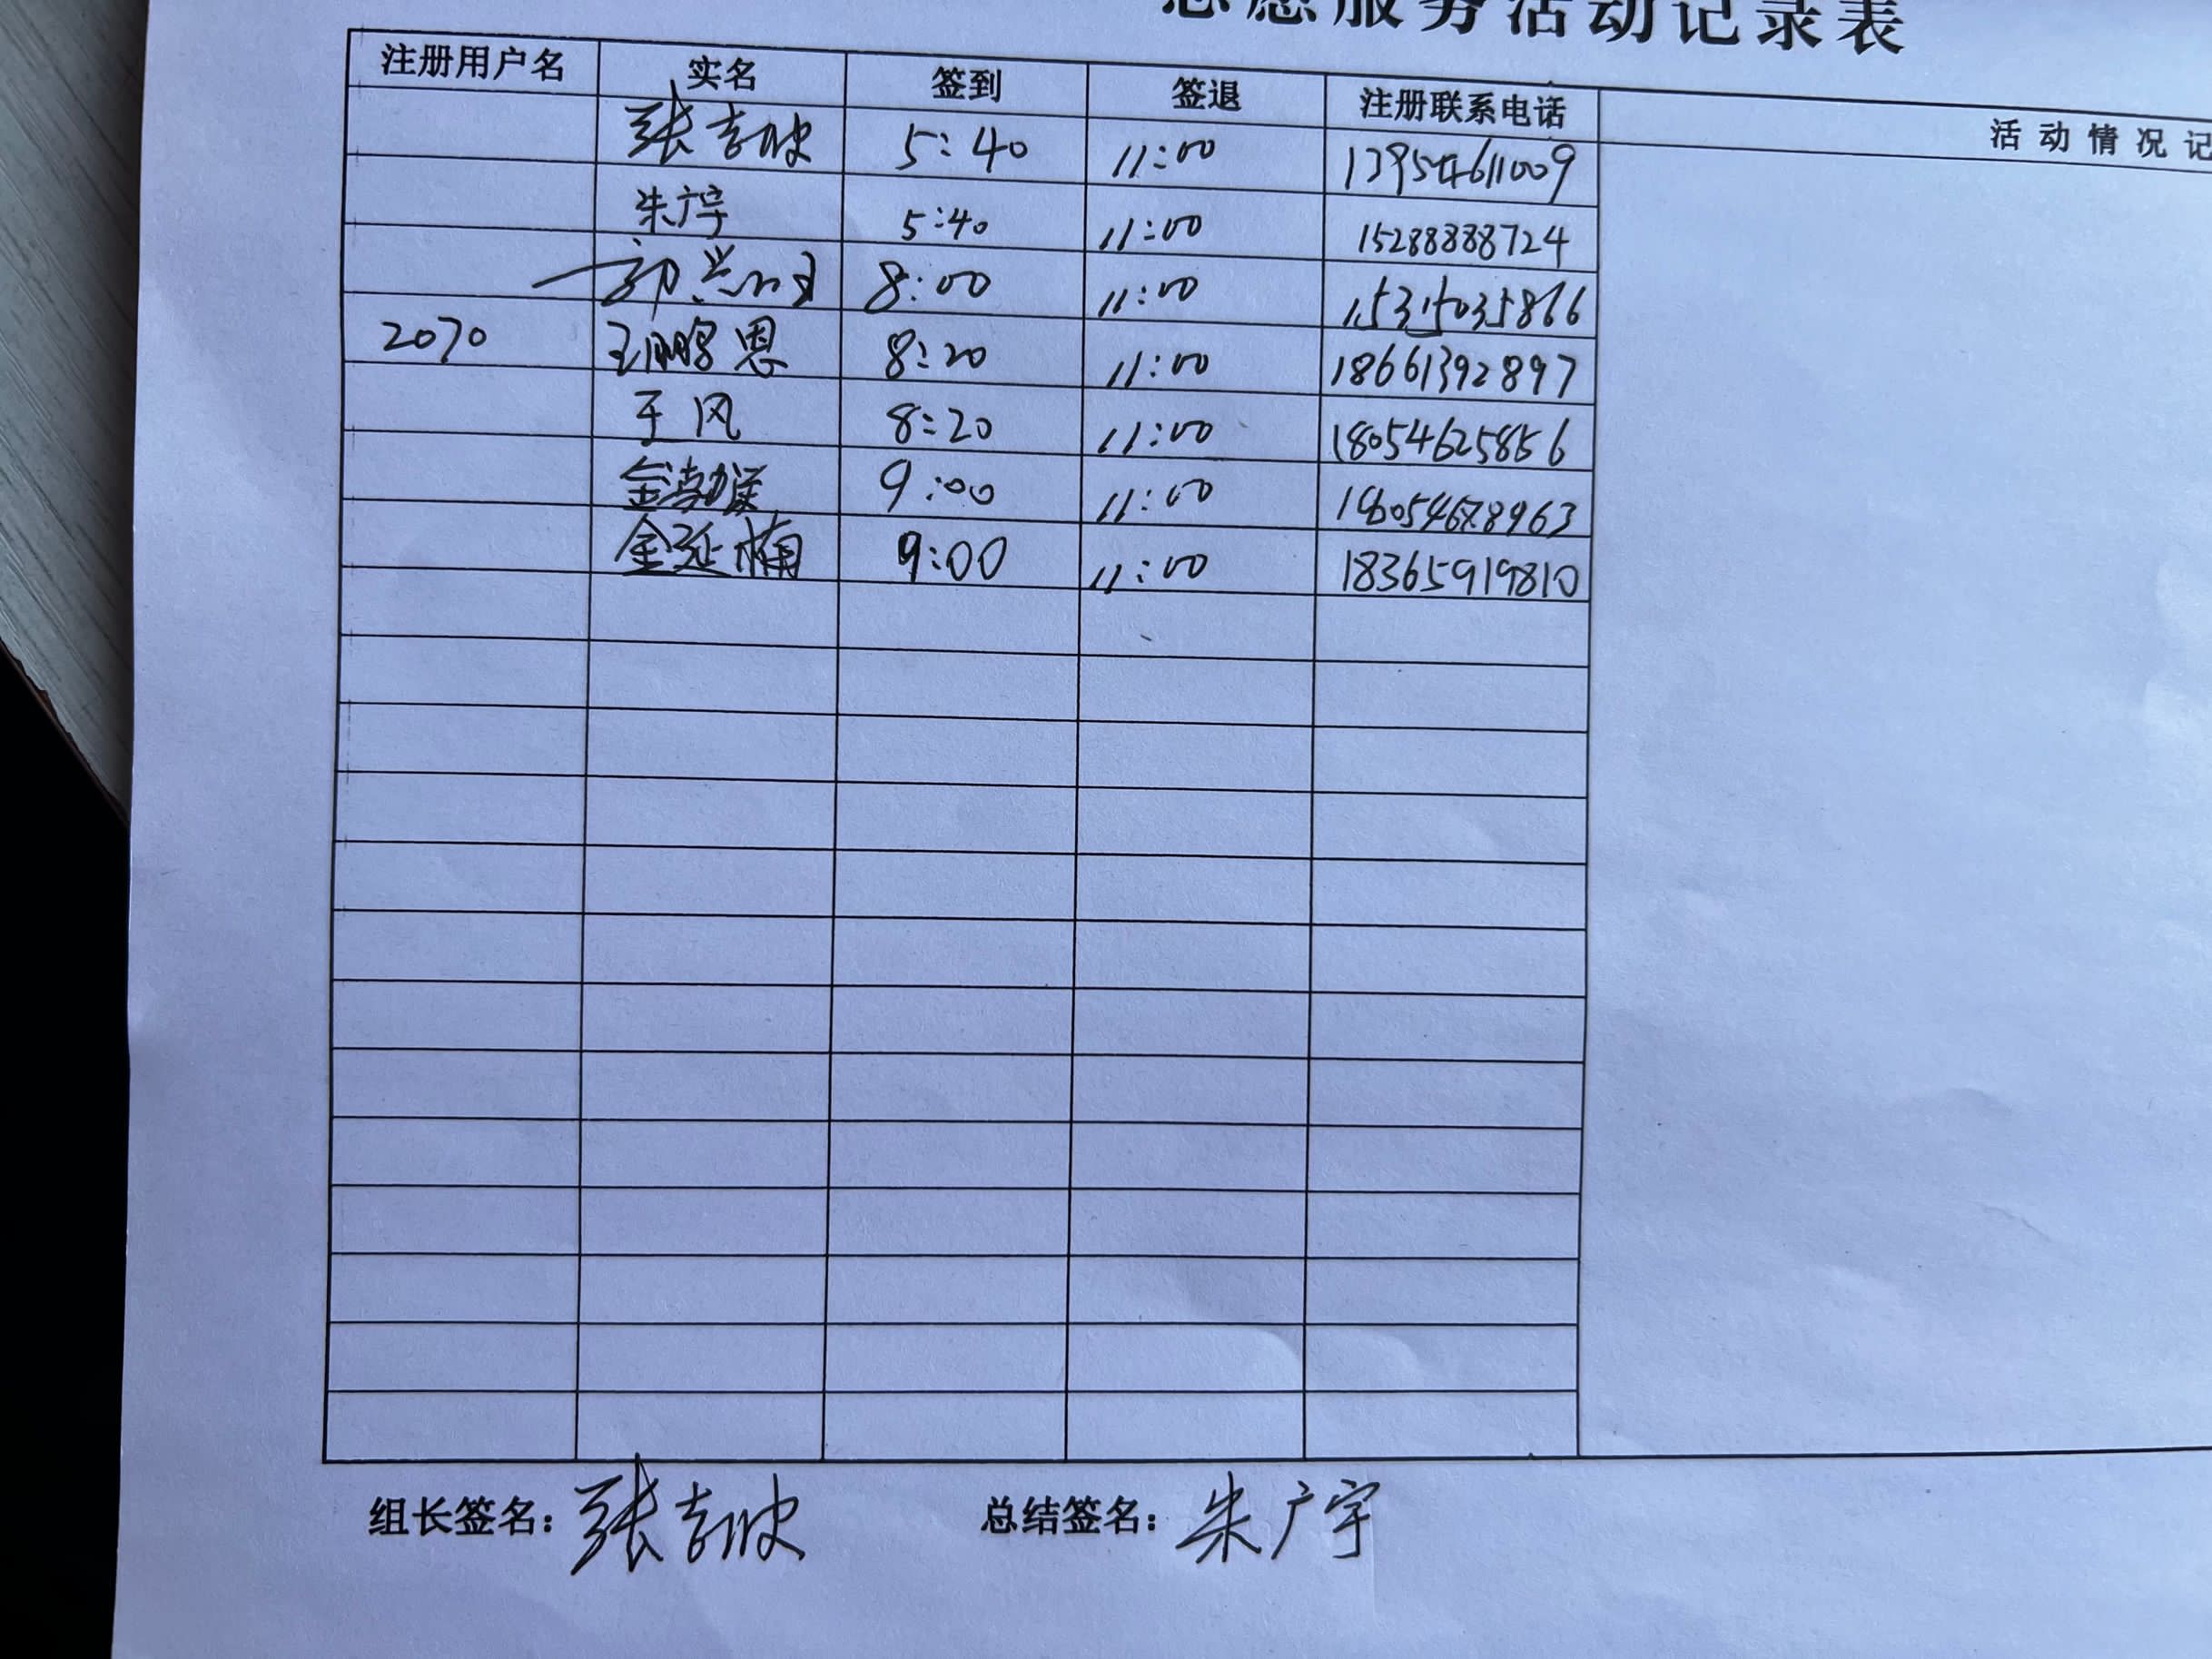 志愿服务活动记录表
注册用户名 实名 签到 签退 注册联系电话 活动情况记
张吉波 5:40 11:00 13954611009
朱广宇 5:40 11:00 15288888724
8:00 11:00 15315035866
2070 王鹏恩 8:20 11:00 18661392897
王风 8:20 11:00 18054625856
金勃 9:00 11:00
金延楠 9:00 11:00 18365919810
组长签名：张吉波 总结签名：朱广宇